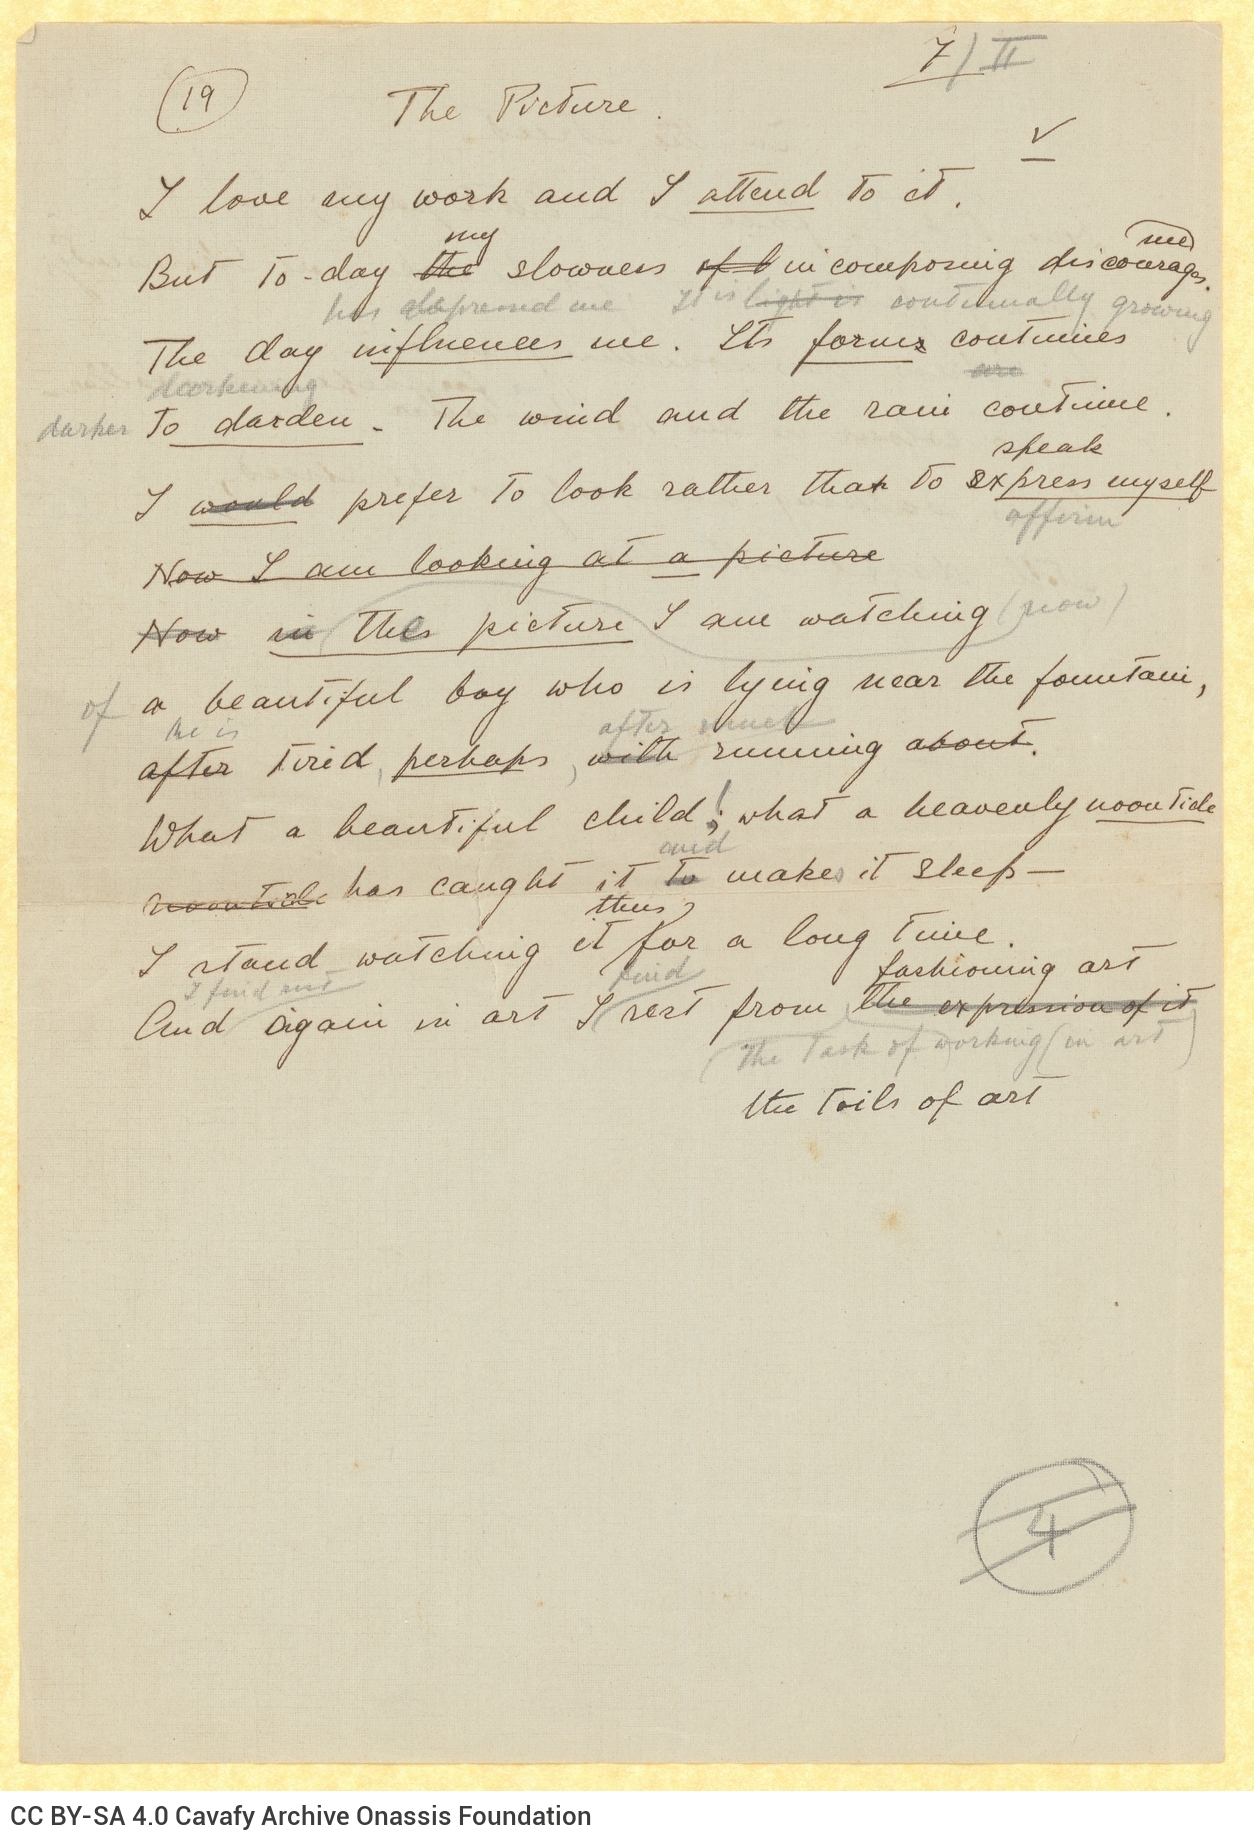 7/II
19
The Picture.
✓
I love my work and I attend to it.
my me
But to-day the slowness of l in composing discourages.
has depressed me It is light is continually growing
The day influences me. Its forms continues
darkening are
darker to darden. The wind and the rain continue.
speak
I would prefer to look rather than to express myself
affirm
Now I am looking at a picture
Now in the picture I am watching (now)
of a beautiful boy who is lying near the fountain,
he is after much
after tired, perhaps, with running about.
What a beautiful child! what a heavenly noontide
and
noontide has caught it to makes it sleep—
thus
I stand watching it for a long time.
I find rest find fashioning art
And again in art I rest from the expression of it
(the task of working (in art)
the toils of art
4
CC BY-SA 4.0 Cavafy Archive Onassis Foundation